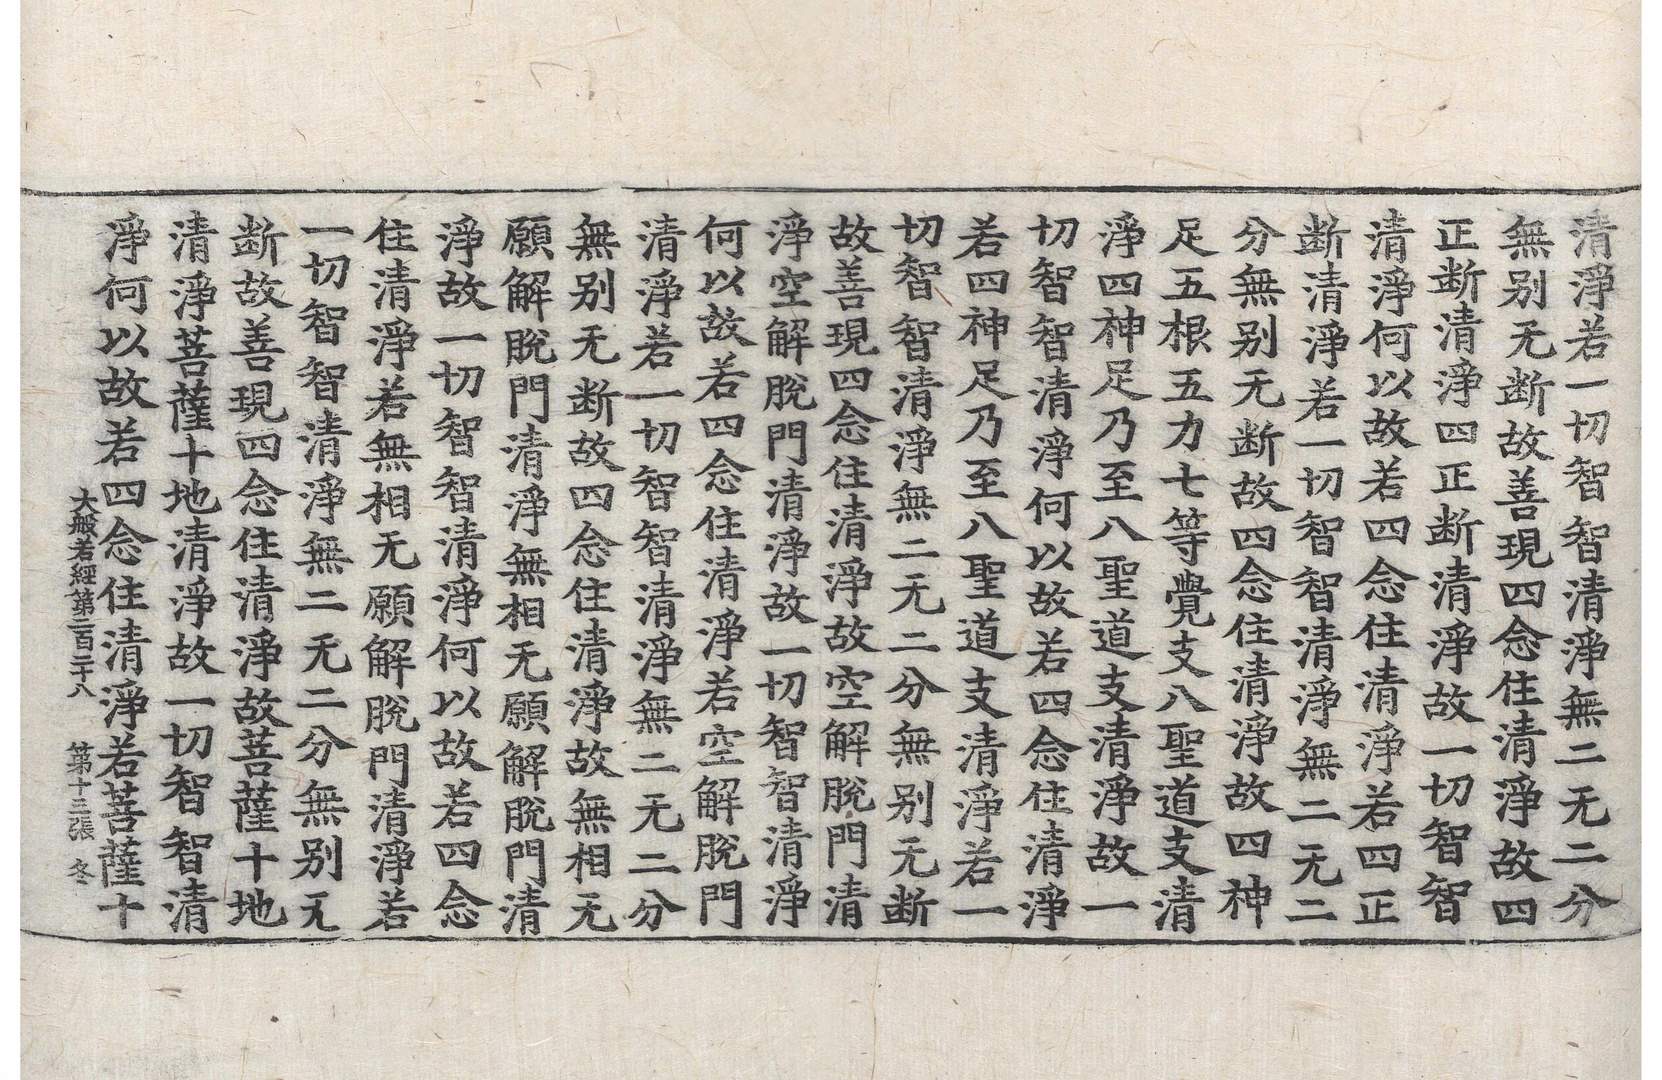 清淨若一切智智清淨無二无二分
無别无断故善現四念住清淨故四
正断清淨四正断清淨故一切智智
清淨何以故若四念住清淨若四正
断清淨若一切智智清淨無二无二
分無别无断故四念住清淨故四神
足五根五力七等覺支八聖道支清
淨四神足乃至八聖道支清淨故一
切智智清淨何以故若四念住清淨
若四神足乃至八聖道支清淨若一
切智智清淨無二无二分無别无断
故善現四念住清淨故空解脫門清
淨空解脫門清淨故一切智智清淨
何以故若四念住清淨若空解脫門
清淨若一切智智清淨無二无二分
無别无断故四念住清淨故無相无
願解脫門清淨無相无願解脫門清
淨故一切智智清淨何以故若四念
住清淨若無相无願解脫門清淨若
一切智智清淨無二无二分無别无
断故善現四念住清淨故菩薩十地
清淨菩薩十地清淨故一切智智清
淨何以故若四念住清淨若菩薩十
大般若經第二百二十八 第十三張 冬